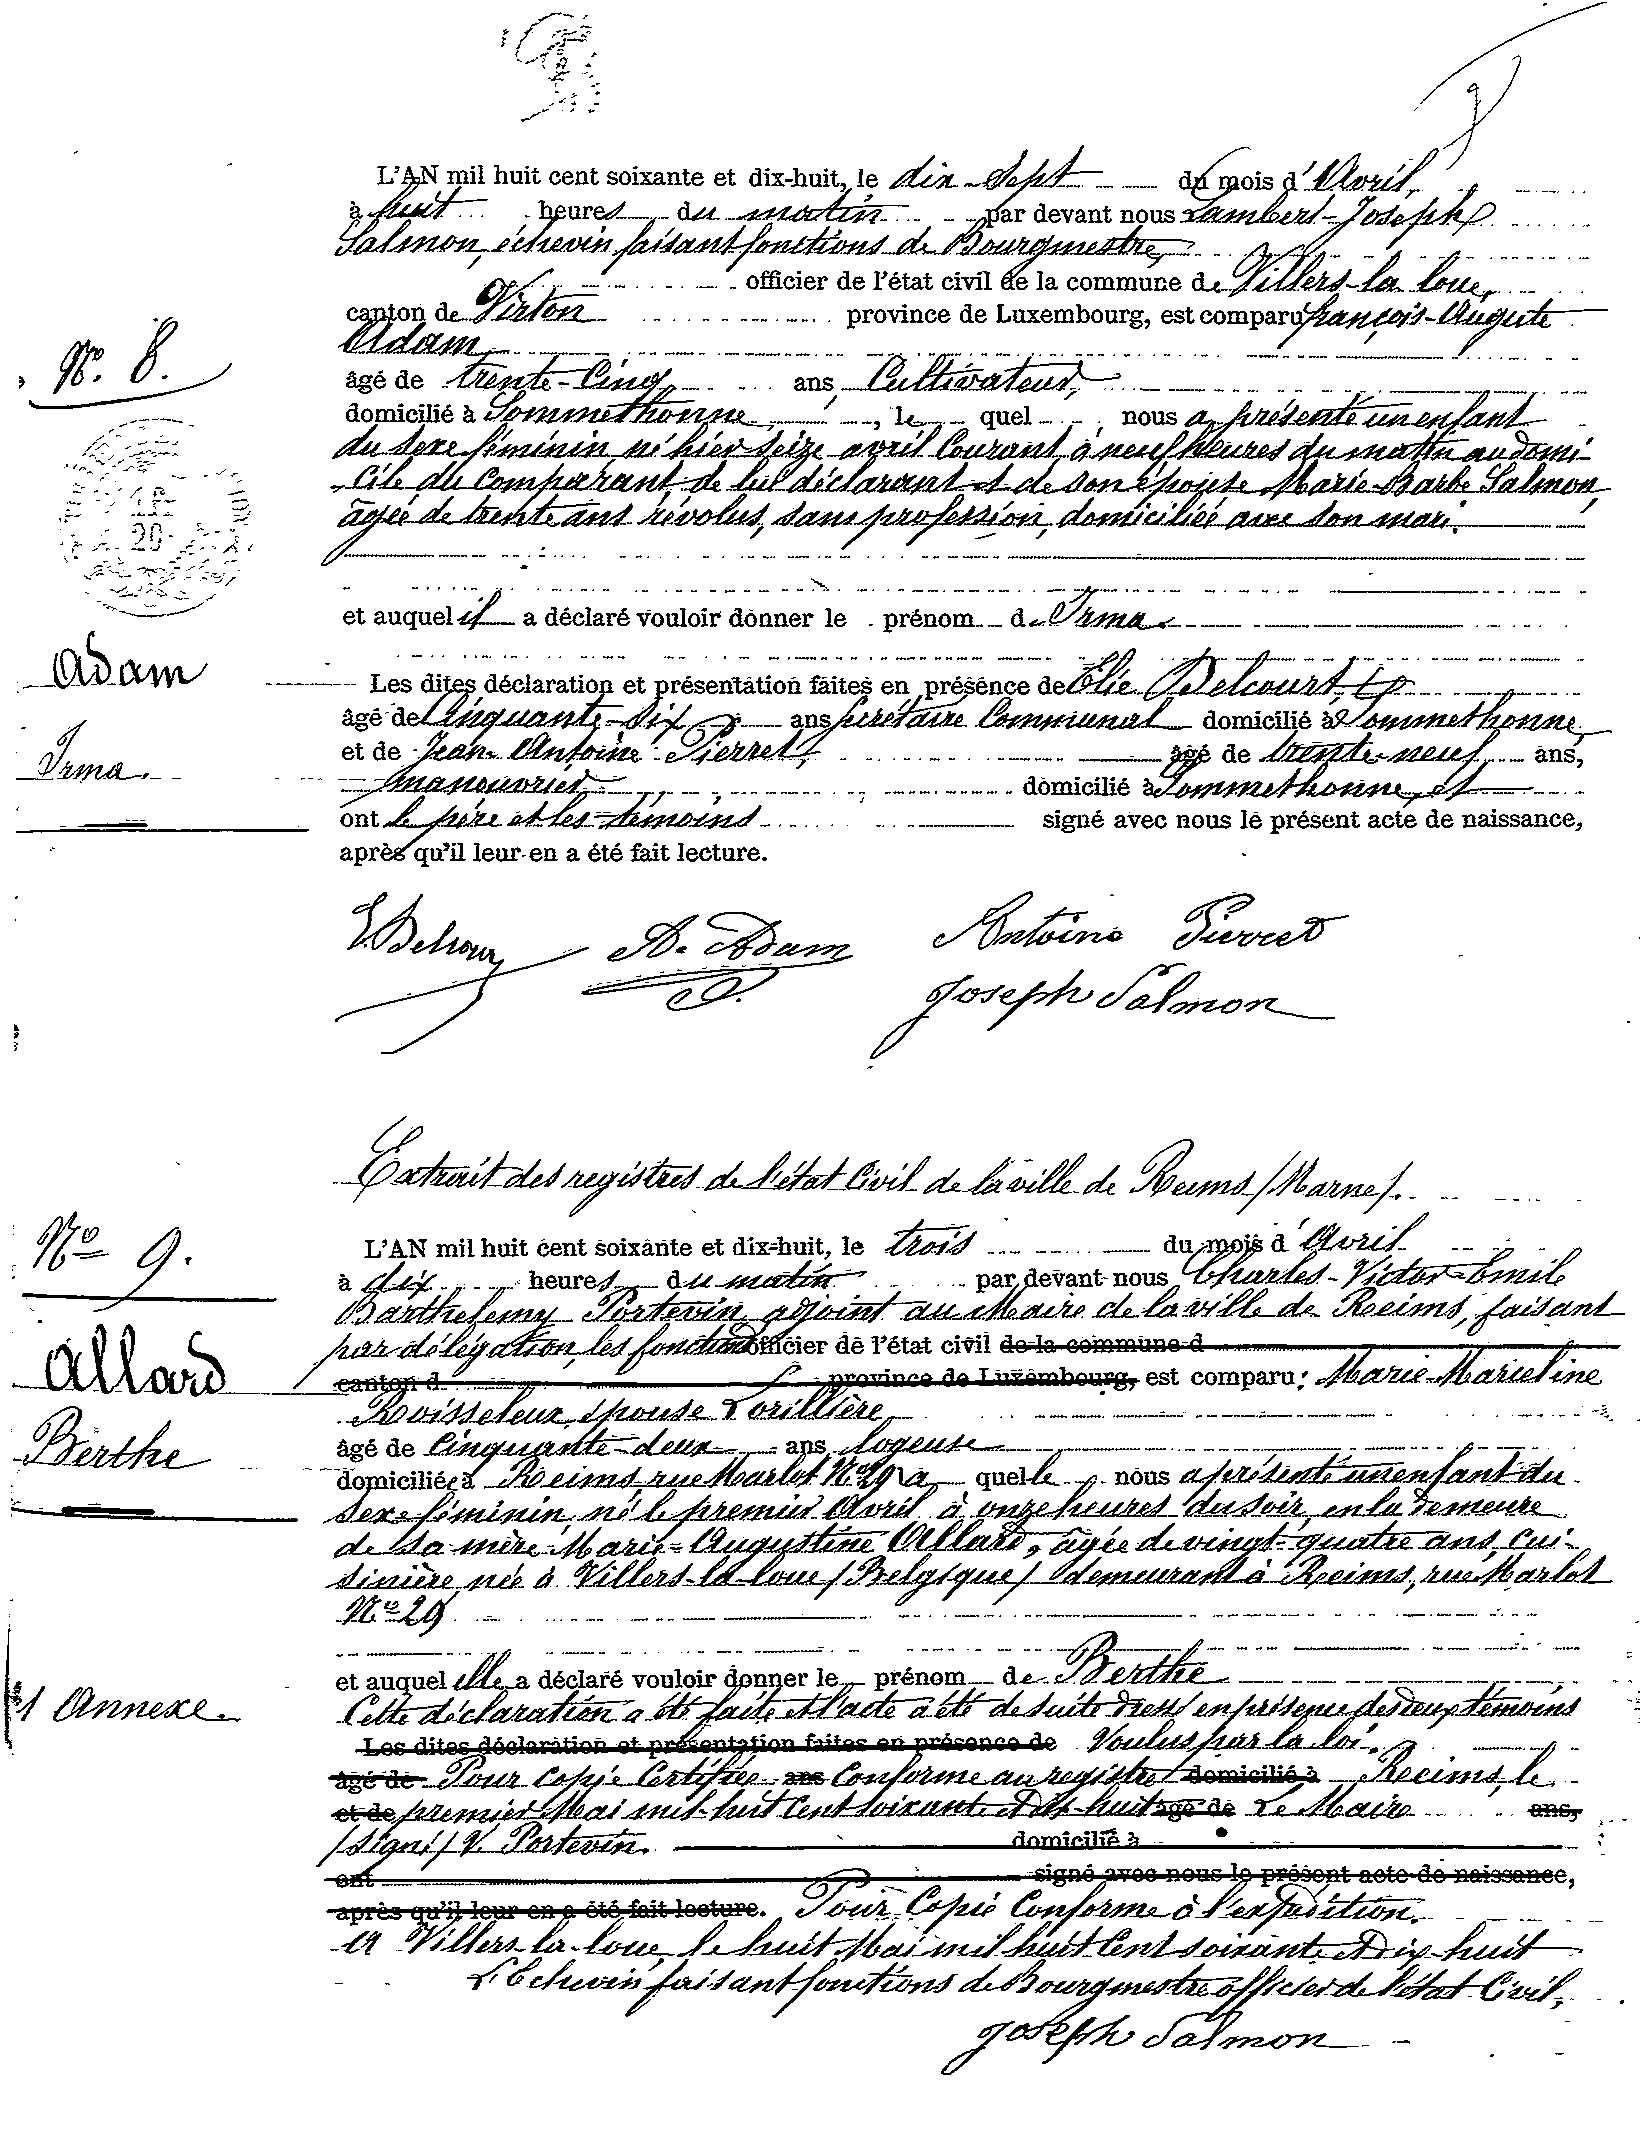 L'AN mil huit cent soixante et dix-huit, le dix-Sept du mois d'Avril,
à huit heures du matin par devant nous Lambert-Joseph
Salmon, échevin faisant fonctions de Bourgmestre,
officier de l'état civil de la commune de Villers-la-loue,
canton de Virton province de Luxembourg, est comparu françois-Auguste
Adam,
N°. 8.
âgé de trente-Cinq ans, Cultivateur,
domicilié à Sommethonne, le quel nous a présenté un enfant
du sexe féminin né hier seize avril Courant à neuf heures du matin au domi-
cile du comparant, de lui déclarant et de son épouse Marie-Barbe Salmon,
âgée de trente ans révolus, sans profession, domiciliée avec son mari.
20
et auquel il a déclaré vouloir donner le prénom de Irma.
Adam
Les dites déclaration et présentation faites en présence de Elie Delcourt,
âgé de Cinquante-Six ans secrétaire Communal domicilié à Sommethonne,
Irma.
et de Jean-Antoine Pierret, âgé de trente-neuf ans,
manouvrier domicilié à Sommethonne, et
ont le père et les témoins signé avec nous le présent acte de naissance,
après qu'il leur en a été fait lecture.
E Delcour A. Adam Antoine Pierret
Joseph Salmon
Extrait des registres de l'état Civil de la ville de Reims (Marne).
N° 9.
L'AN mil huit cent soixante et dix-huit, le trois du mois d'Avril
à dix heures du matin par devant nous Charles-Victor-Emile
Barthelemy Portevin, adjoint au Maire de la ville de Reims, faisant
par délégation, les fonctions d'officier de l'état civil de la commune d
Allard
canton d province de Luxembourg, est comparu: Marie-Marceline
Roisseleux, épouse Lorillière,
Berthe
âgé de Cinquante-deux ans logeuse
domiciliée à Reims, rue Marlot N° 29 la quelle nous a présenté un enfant du
sexe féminin, né le premier Avril à onze heures du soir, en la demeure
de sa mère Marie-Augustine Allard, âgée de vingt-quatre ans, cui-
sinière, née à Villers-la-loue (Belgique) demeurant à Reims, rue Marlot
N° 29
et auquel elle a déclaré vouloir donner le prénom de Berthe
1 Annexe.
Cette déclaration a été faite et l'acte a été de suite dressé en présence des deux témoins
Les dites déclaration et présentation faites en présence de Voulus par la loi.
âgé de Pour copie Certifiée ans Conforme au registre domicilié à Reims, le
et de premier Mai mil-huit Cent soixante et dix-huit âgé de Le Maire ans,
(signé) V. Portevin. domicilié à
ont signé avec nous le présent acte de naissance,
après qu'il leur en a été fait lecture. Pour Copie Conforme à l'expédition.
A Villers-la-loue, le huit Mai mil huit Cent soixante et dix-huit
L'Echevin faisant fonctions de Bourgmestre officier de l'état Civil,
Joseph Salmon